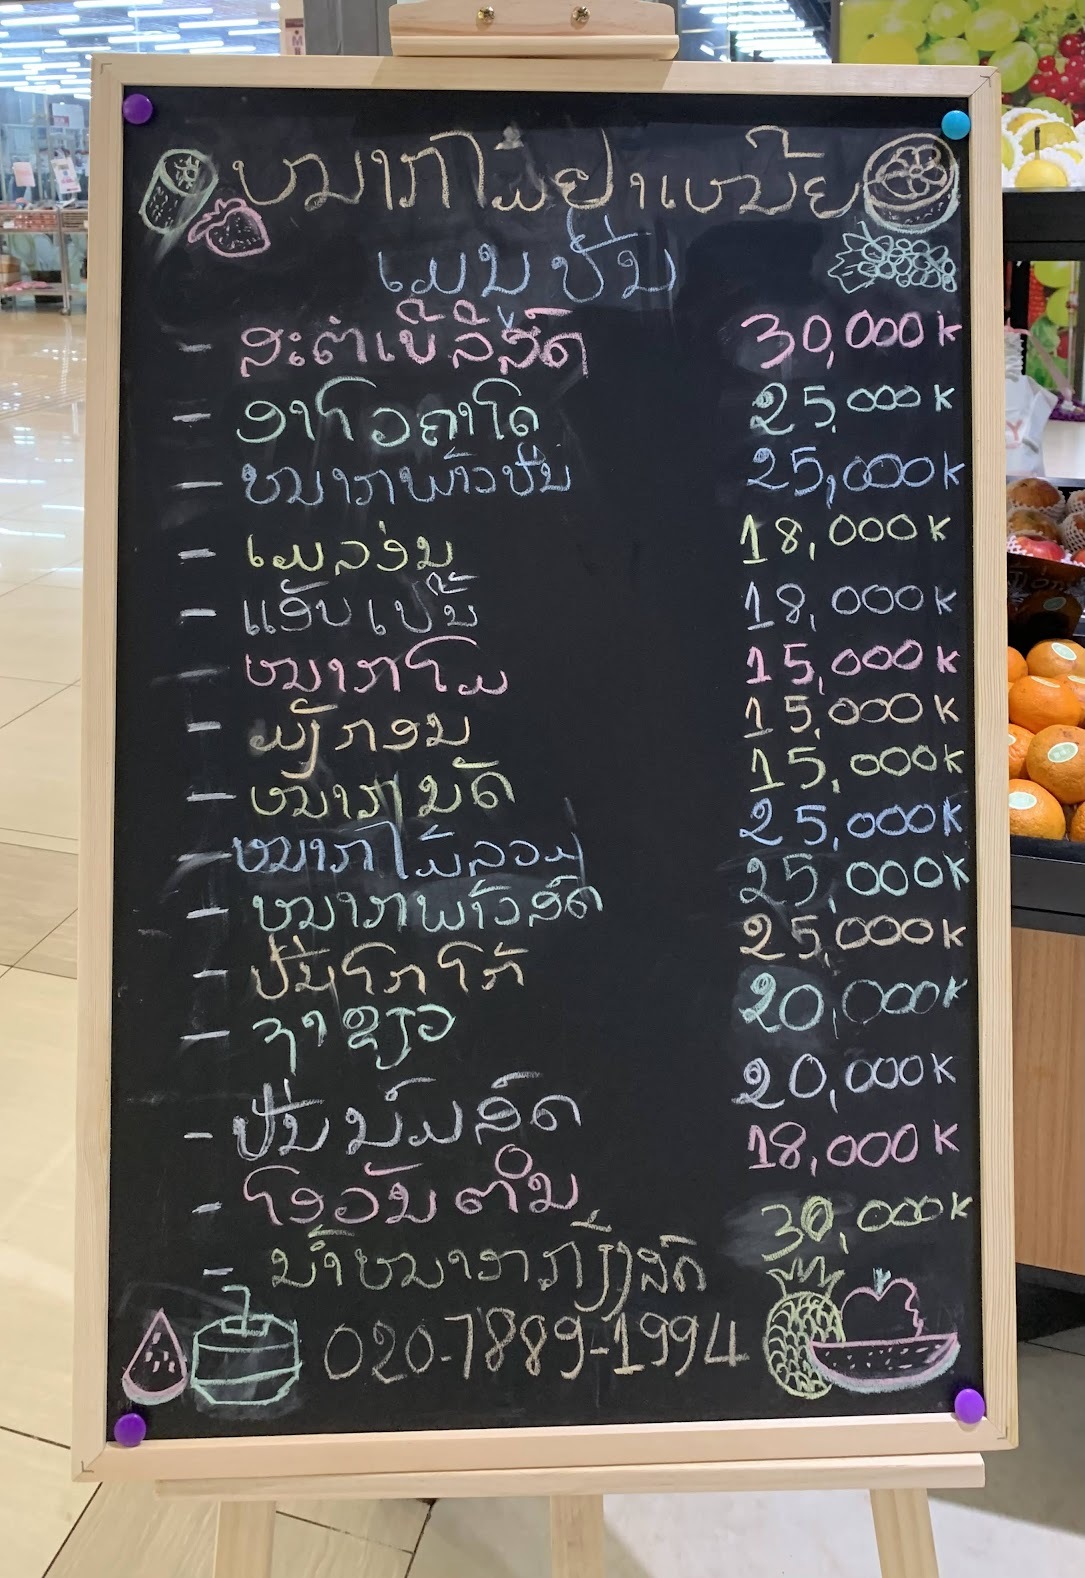 ໝາກໄມ້ຢາເໝີຍ
ເມນູປັ່ນ
- ສະຕໍເບີລີສົດ 30,000 K
- ອາໂວຄາໂດ 25,000 K
- ໝາກພ້າວປັ່ນ 25,000 K
- ເມລ່ອນ 18,000 K
- ແອັບເປິ້ນ 18,000 K
- ໝາກໂມ 15,000 K
- ມັງກອນ 15,000 K
- ໝາກນັດ 15,000 K
- ໝາກໄມ້ລວມ 25,000 K
- ໝາກພ້າວສົດ 25,000 K
- ປັ່ນໂກໂກ້ 25,000 K
- ຊາຂຽວ 20,000 K
- ປັ່ນນົມສົດ 20,000 K
- ໂອວັນຕິນ 18,000 K
- ນ້ຳໝາກກ້ຽງສົດ 30,000 K
020-7889-1994